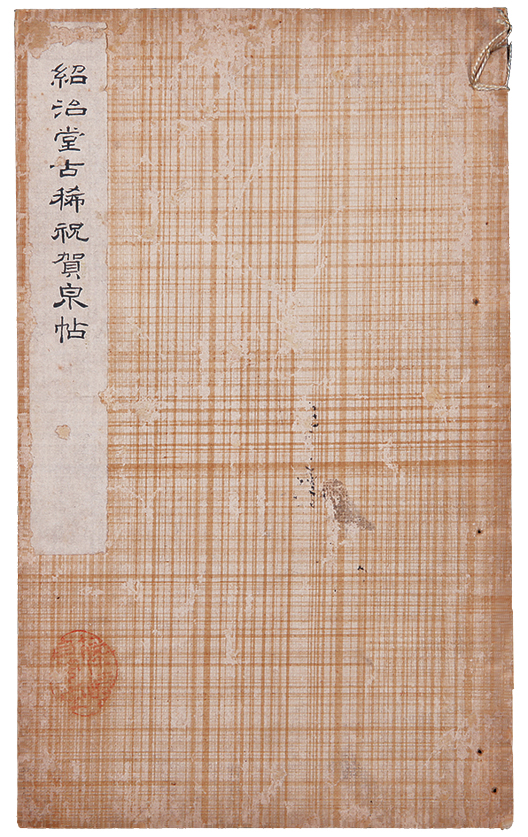 紹治堂古稀祝賀泉帖